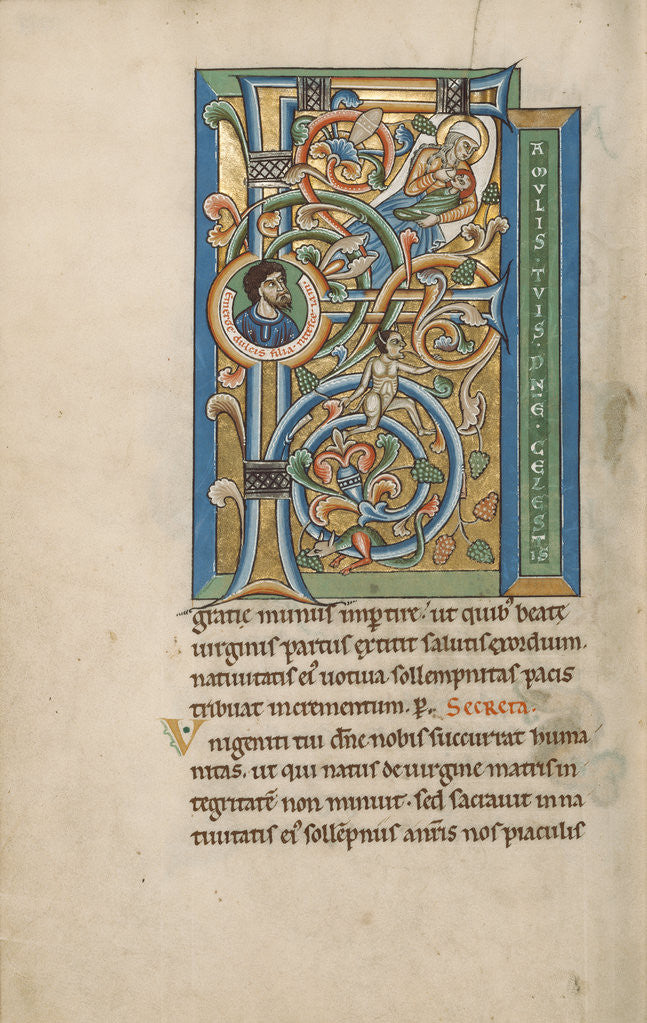 F
AMVLIS · TVIS · DNE · CELESTIS
Emerge dulcis filia · nitesce iam ·
gratie munus imp̱tire · ut quib; beatę
uirginis partus extitit salutis exordium ·
natiuitatis ei᾽ uotiua sollempnitas pacis
tribuat incrementum · p̱. Secreta ·
Vnigeniti tui dn̄e nobis succurrat huma
nitas · ut qui natus de uirgine matris in
tegritatē non minuit · sed sacrauit in na
tiuitatis ei᾽ sollēpniis a nr̄is nos piaculis